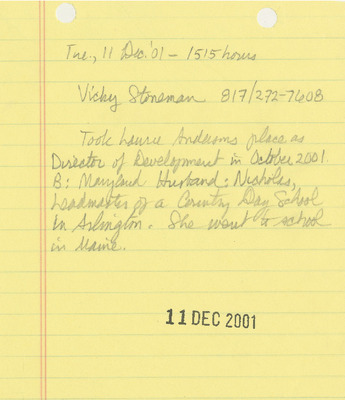 Tue., 11 Dec. '01 – 1515 hours
Vicky Stoneman 817/272-7608
Took Laurie Andersons place as
Director of Development in October 2001.
B: Maryland Husband: Nicholas,
headmaster of a Country Day School
in Arlington. She went to school
in Maine.
11 DEC 2001